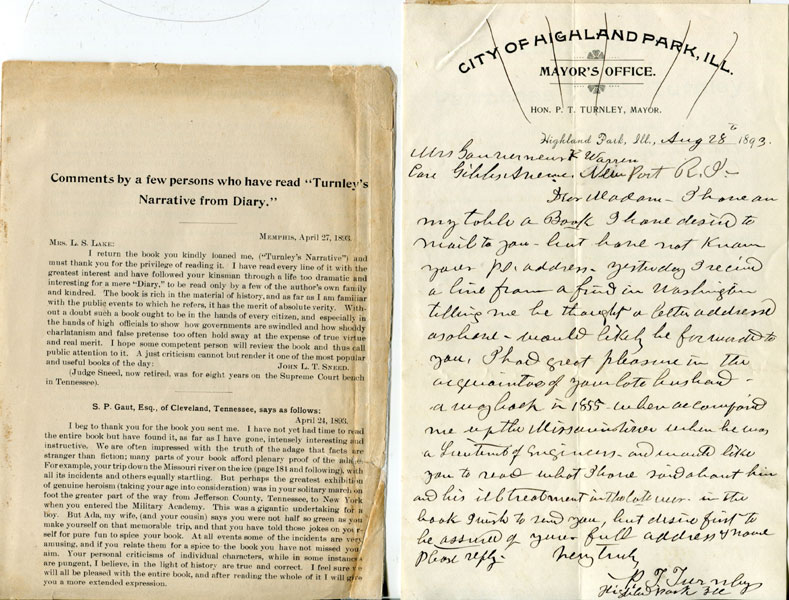 Comments by a few persons who have read "Turnley's
Narrative from Diary."
MEMPHIS, April 27, 1893.
MRS. L. S. LAKE:
I return the book you kindly loaned me, ("Turnley's Narrative") and
must thank you for the privilege of reading it. I have read every line of it with the
greatest interest and have followed your kinsman through a life too dramatic and
interesting for a mere "Diary," to be read only by a few of the author's own family
and kindred. The book is rich in the material of history, and as far as I am familiar
with the public events to which he refers, it has the merit of absolute verity. With-
out a doubt such a book ought to be in the hands of every citizen, and especially in
the hands of high officials to show how governments are swindled and how shoddy
charlatanism and false pretense too often hold sway at the expense of true virtue
and real merit. I hope some competent person will review the book and thus call
public attention to it. A just criticism cannot but render it one of the most popular
and useful books of the day:
JOHN L. T. SNEED.
(Judge Sneed, now retired, was for eight years on the Supreme Court bench
in Tennessee).
S. P. Gaut, Esq., of Cleveland, Tennessee, says as follows:
April 24, 1893.
I beg to thank you for the book you sent me. I have not yet had time to read
the entire book but have found it, as far as I have gone, intensely interesting and
instructive. We are often impressed with the truth of the adage that facts are
stranger than fiction; many parts of your book afford plenary proof of the
For example, your trip down the Missouri river on the ice (page 181 and following), with
all its incidents and others equally startling. But perhaps the greatest exhibition
of genuine heroism (taking your age into consideration) was in your solitary march on
foot the greater part of the way from Jefferson County, Tennessee, to New York
when you entered the Military Academy. This was a gigantic undertaking for a
boy. But Ada, my wife, (and your cousin) says you were not half so green as you
make yourself on that memorial trip, and that you have told those jokes on your-
self for pure fun to spice your book. At all events some of the incidents are very
amusing, and if you relate them for a spice to the book you have not missed your
aim. Your personal criticisms of individual characters, while in some instances
are pungent, I believe, in the light of history are true and correct. I feel sure
will all be pleased with the entire book, and after reading the whole of it I will give
you a more extended expression.
CITY OF HIGHLAND PARK, ILL.
MAYOR'S OFFICE.
HON. P. T. TURNLEY, MAYOR.
Highland Park, Ill., Aug 28th 1893.
Mrs Gouverneur K Warren
Care Gibbs Avenue. New Port R. I-
Dear Madam - I have on
my table a Book I have desired to
mail to you - but have not known
your p.o. address - yesterday I recd
a line from a friend in Washington
telling me he thought a letter addressed
as above - would likely be forwarded to
you, I had great pleasure in the
acquaintance of your late husband -
away back in 1855 - when accompanied
me up the Missouri river when he was
a Lieutenant of Engineers - and would like
you to read what I have said about him
and his ill treatment in the late war - in the
book I wish to send you, but desire first to
be assured of your full address & name
Please reply very truly
P. T. Turnley
Highland Park Ill